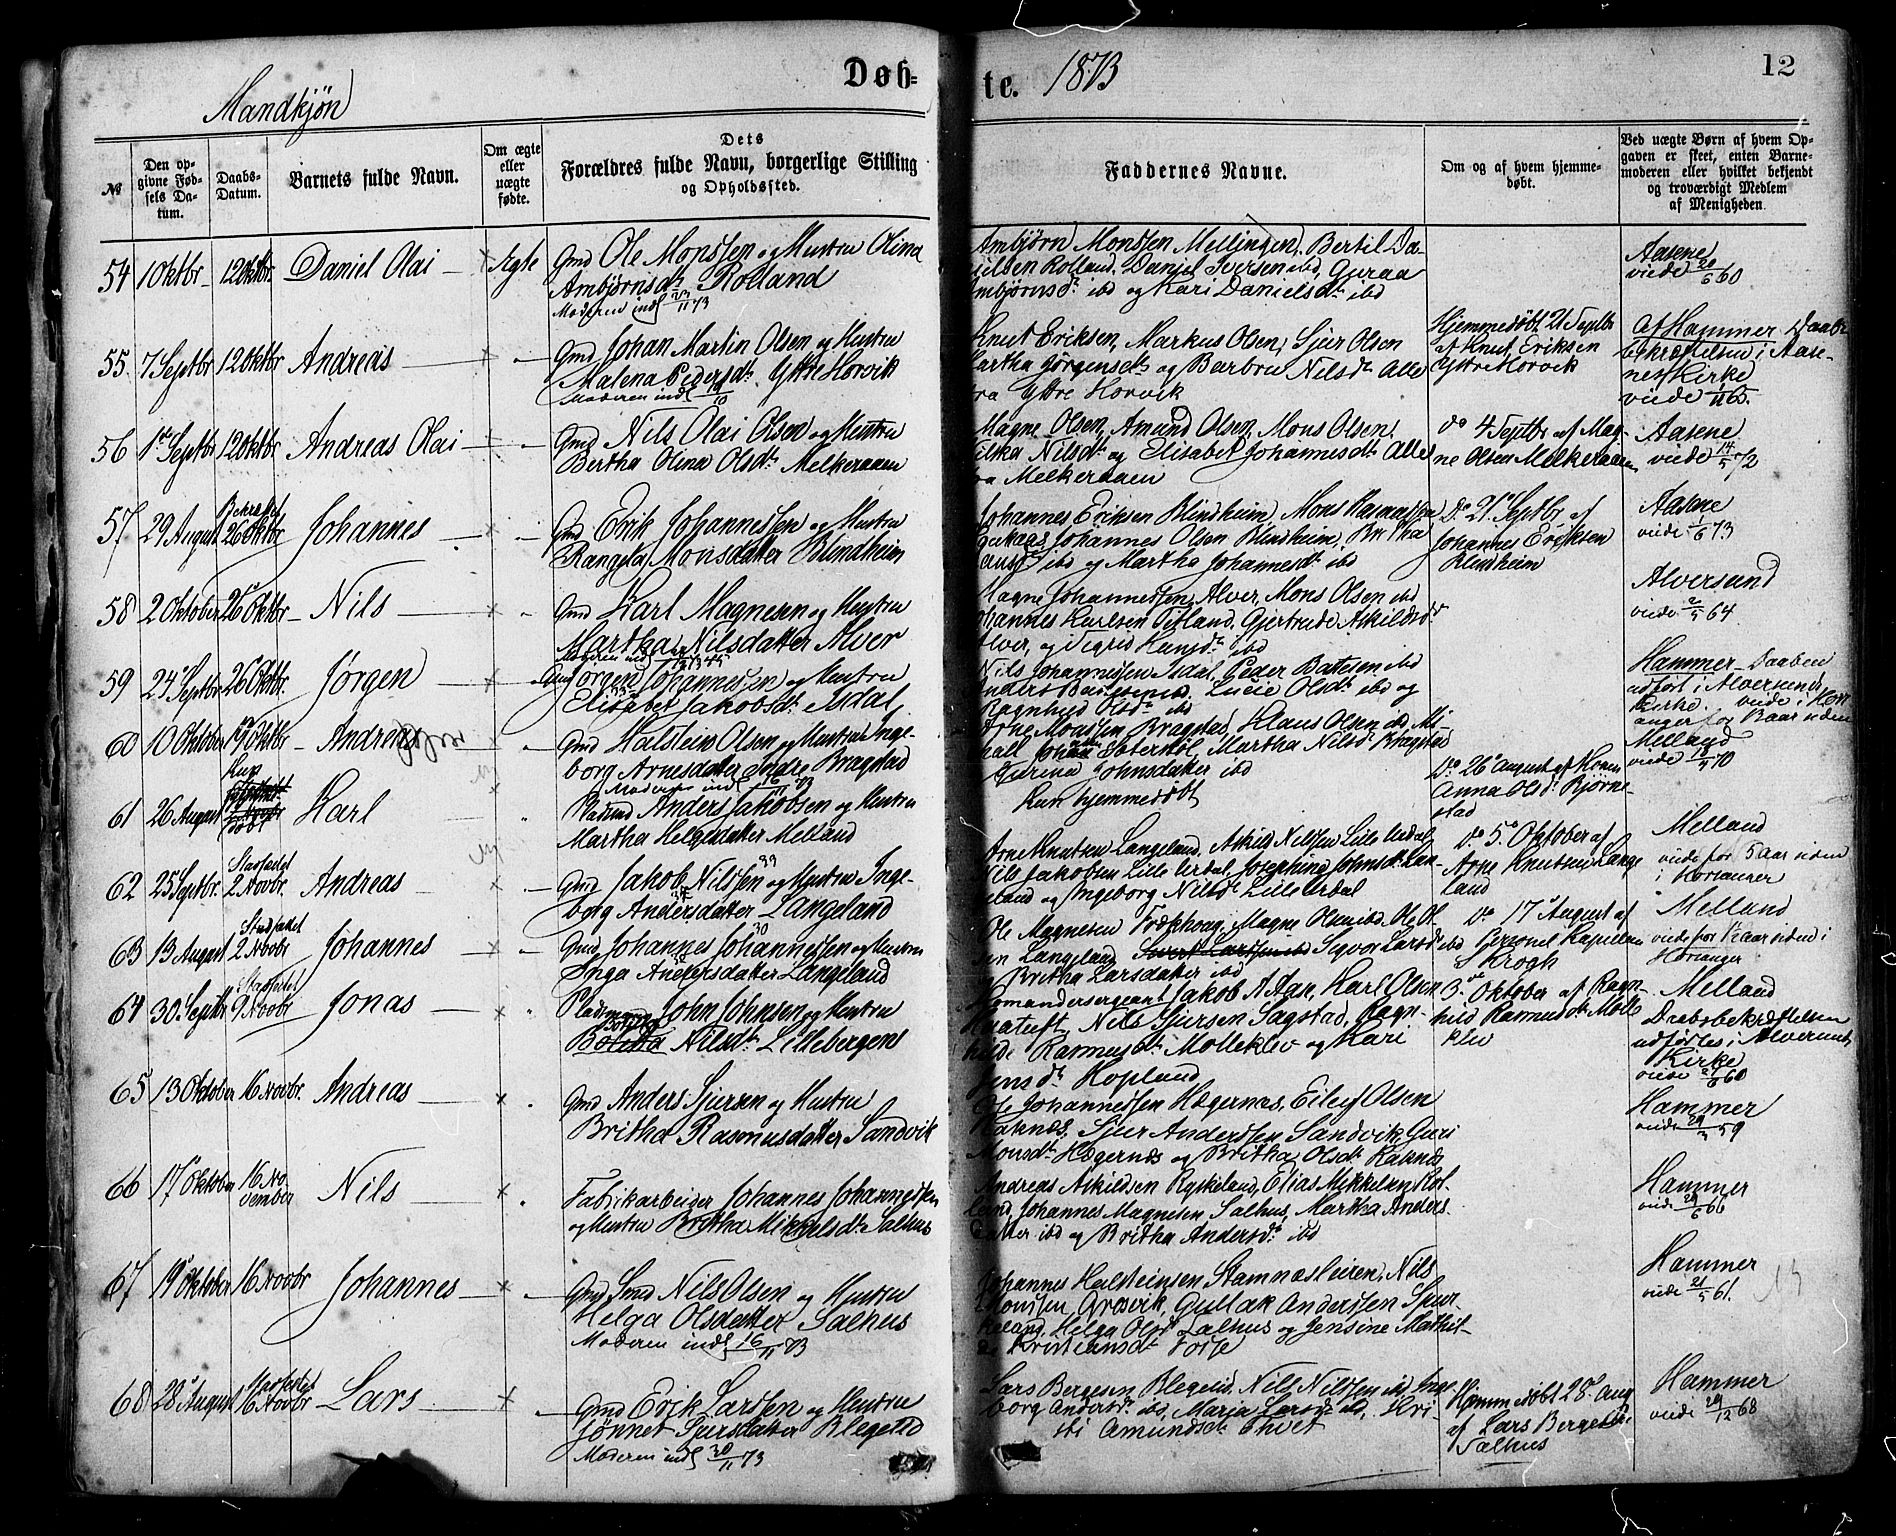 Mandkjøn
Døb-
te. 1873
12
№
Den opgivne Fødsels Datum.
Daabs-Datum.
Barnets fulde Navn.
Om ægte eller uægte fødte.
Dets Forældres fulde Navn, borgerlige Stilling og Opholdssted.
Faddernes Navne.
Om og af hvem hjemmedøbt.
Ved uægte Børn af hvem Opgaven er skeet, enten Barnemoderen eller hvilket bekjendt og troværdigt Medlem af Menigheden.
54 1 Oktbr 12 Oktbr Daniel Olai Ægte
Gmd Ole Monssen og Hustru Olina
Ambjørnsdtr Rolland
Moderen indl 23/11 73
Ambjørn Monssen Mellingen, Bertil Da-
nielsen Rolland, Daniel Iversen ibd, Guraa
Ambjørnsdtr ibd og Kari Danielsdtr ibd
Aasene
viede 20/6 60
55. 7 Septbr 12 Oktbr Andreas
Gmd Johan Martin Olsen og Hustru
Malena Pedersdtr Yttre Horvik
Moderen indl
Knut Eriksen, Markus Olsen, Sjur Olsen
Martha Jørgensdtr og Barbru Nilsdtr Alle
fra Yttre Horvik
Hjemmedøbt 21 Septbr
af Knut Eriksen
Yttre Horvik
Af Hammer Daabs
bekræftelsen i Aase-
nes Kirke
viede
56 1ste Septbr 12 Oktbr Andreas Olai
Gmd Nils Olai Olsen og Hustru
Bertha Olina Olsdtr Melkeraaen
Magne Olsen, Amund Olsen, Mons Olsen,
Nilsdtr og Elisabet Johannesdtr Alle
fra Melkeraaen
do 4 Septbr af Mag-
ne Olsen Melkeraaen
Aasene
viede 14/5 72
57 29 August 26 Oktbr Johannes
Gmd Erik Johannessen og Hustru
Rangela Monsdatter Blindheim
Johannes Eriksen Blindheim, Mons Rasmussen
Johannes Olsen Blindheim, Britha
ibd og Martha Johannesdtr ibd
Do 21 Septbr af
Johannes Eriksen
Blindheim
Aasene
viede 1/6 73
58 2 Oktober 26 Oktbr Nils
Gmd Karl Magnesen og Hustru
Martha Nilsdatter Alver
Moderen indl
Magne Johannessen Alver, Mons Olsen ibd
Johannes Karlsen Titland, Gjertrude Askildsdtr
Alver, og Sigrid Hansdtr ibd
Alversund
viede 2/5 64
59 24 Septbr 26 Oktbr. Jørgen
Gmd Jørgen Johannessen og Hustru
Elisabet Jakobsdtr Isdal
Nils Johannessen Isdal, Peder ibd
Lucie Olsdtr ibd og
Ragnhild Olsdtr ibd
Hammer Daaben
udført i Alversunds
Kirke. viede i Ham
60 10 Oktober 19 Oktbr Andreas
Gmd Halstein Olsen og Hustru Inge-
borg Arnesdatter Indre Bragstad
Moderen indl 16/11 73
Arne Monssen Bragstad, Klaus Olsen ibd, Mi-
Martha Nilsdtr Bragstad
Gurina Johnsdatter ibd
Melland
viede 70
61 26 August Kun Karl
Anders Jakobsen og Hustru
Martha Helgesdatter Melland
Kun hjemmedøbt
Do 26 August af Konen
Anna Olsdtr Bjørne-
stad
62 25 Septbr. Stadfæstet 2 Novbr. Andreas
Gmd Jakob Nilssen og Hustru Inge-
borg Andersdatter Langeland
Arne Knutsen Langeland, Askild Nilssen Lille Urdal,
Nils Jakobsen Lille Urdal, Josephine Johnsdtr Lan-
geland og Ingeborg Nilsdtr Lille Urdal
do 5 Oktober af
Arne Knutsen Lange
land
Melland
viede for 5 Aar siden
i Hosanger
63 13 August Stadfæstet 2 Novbr Johannes
Gmd Johannes Johannessen og Hustru
Inga Andersdatter Langeland
Ole Magnesen Magne Olsen ibd, Ole Ol
sen Langeland Sivert Larssen ibd Sygvor Larsdtr ibd
Britha Larsdatter ibd
do 17 August af
Personel Kapellan
Krogh
Melland
viede for Aar siden i
Hosanger
64 30 Septbr Stadfæstet 9 Novbr Jonas
Pladsmand John Johnsen og Hustru
Nilsdtr Lillebergen
Kommandersergeant Jakob A Aase, Karl Olsen
Nils Sjursen Sagstad, Ragn-
hilde Rasmusdtr Molleklev og Kari
Jensdtr Hopland
3 Oktober af Ragn-
hild Rasmusdtr Molle
klev
Melland
Daabsbekræftelsen
udførtes i Alversund
Kirke
viede 21/6 60
65 13 Oktober 16 Novbr. Andreas
Gmd Anders Sjursen og Hustru
Britha Rasmusdatter Sandvik
Ole Johannessen Hægernæs, Eilef Olsen
Raknæs, Sjur Anderssen Sandvik Guri
Monsdtr Hægernæs og Britha Olsdtr Raknæs
Hammer
viede 29/3 59
66 17 Oktober 16 No
vember Nils
Fabrikarbeider Johannes Johannessen
og Hustru Britha Mikkelsdtr Salhus
Andreas Askildsen Rydkeland, Elias Mikkelsen Rol
land, Johannes Magnesen Salhus, Martha Anders
datter ibd og Britha Andersdtr ibd
Hammer
viede 29/6 66
67 19 Oktober 16 Novbr Johannes
Gmd Smd Nils Olsen og Hustru
Helga Olsdatter Salhus
Moderen indl 16/11 73
Johannes Halsteinsen Stamnæsleiren, Nils
Monssen Grosvik, Gullak Anderssen Spur-
keland, Helga Olsdtr Salhus og Jensine Mathil-
de Kristiansdtr Torje
Hammer
viede 21/5 61.
68 28 August Stadfæstet 16 Novbr Lars
Gmd Erik Larssen og Hustru
Jønnet Sjursdatter Blegelid
Moderen indl 30/11 73
Lars Bergesen Blegelid, Nils Nilssen ibd Inge
borg Andersdtr ibd, Maria Larsdtr ibd, Kri-
sti Amundsdtr Thvet
Hjemmedøbt 28 Aug
af Lars Bergesen
Salhus
Hammer
viede 29/12 68